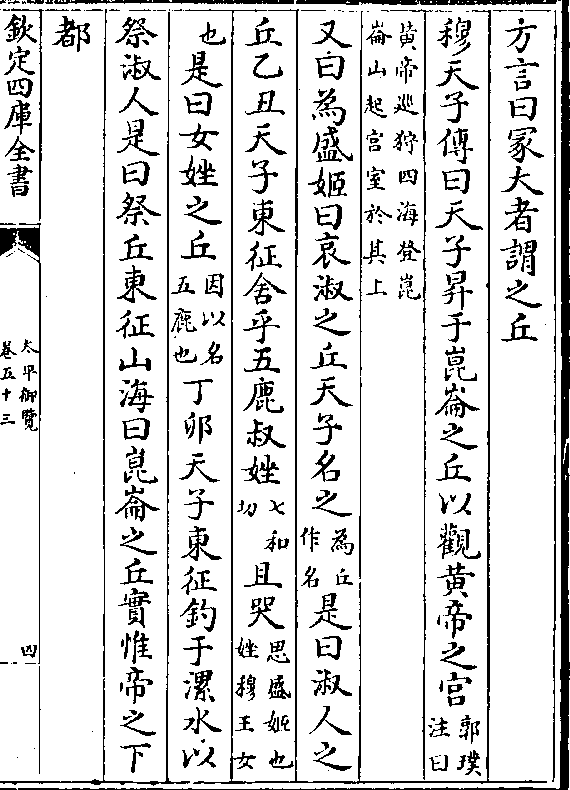 方言曰冡大者謂之丘
穆天子傳曰天子昇于崑崙之丘以觀黄帝之宫郭璞注曰
黄帝巡狩四海登崑崙山起宫室於其上
又曰為盛姬曰哀淑之丘天子名之為丘作名是曰淑人之
丘乙丑天子東征舍乎五鹿叔㛗七和切且哭思盛姬也㛗穆王女
也是曰女㛗之丘因以名五鹿也丁卯天子東征釣于漯水以
祭淑人是曰祭丘東征山海曰崑崙之丘實惟帝之下
都
欽定四庫全書
太平御覽
卷五十三
四